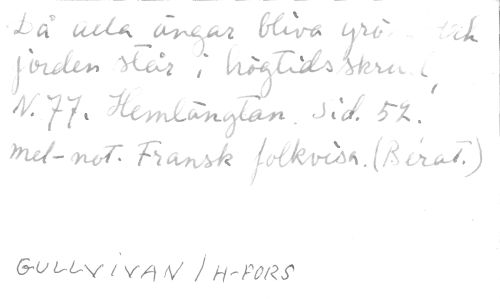 Då alla ängar bliva grö och
jorden står i högtidsskrud,
N. 77. Hemlängtan. Sid. 52.
mel-not. Fransk folkvisa. (Bérat.)
GULLVIVAN / H-FORS